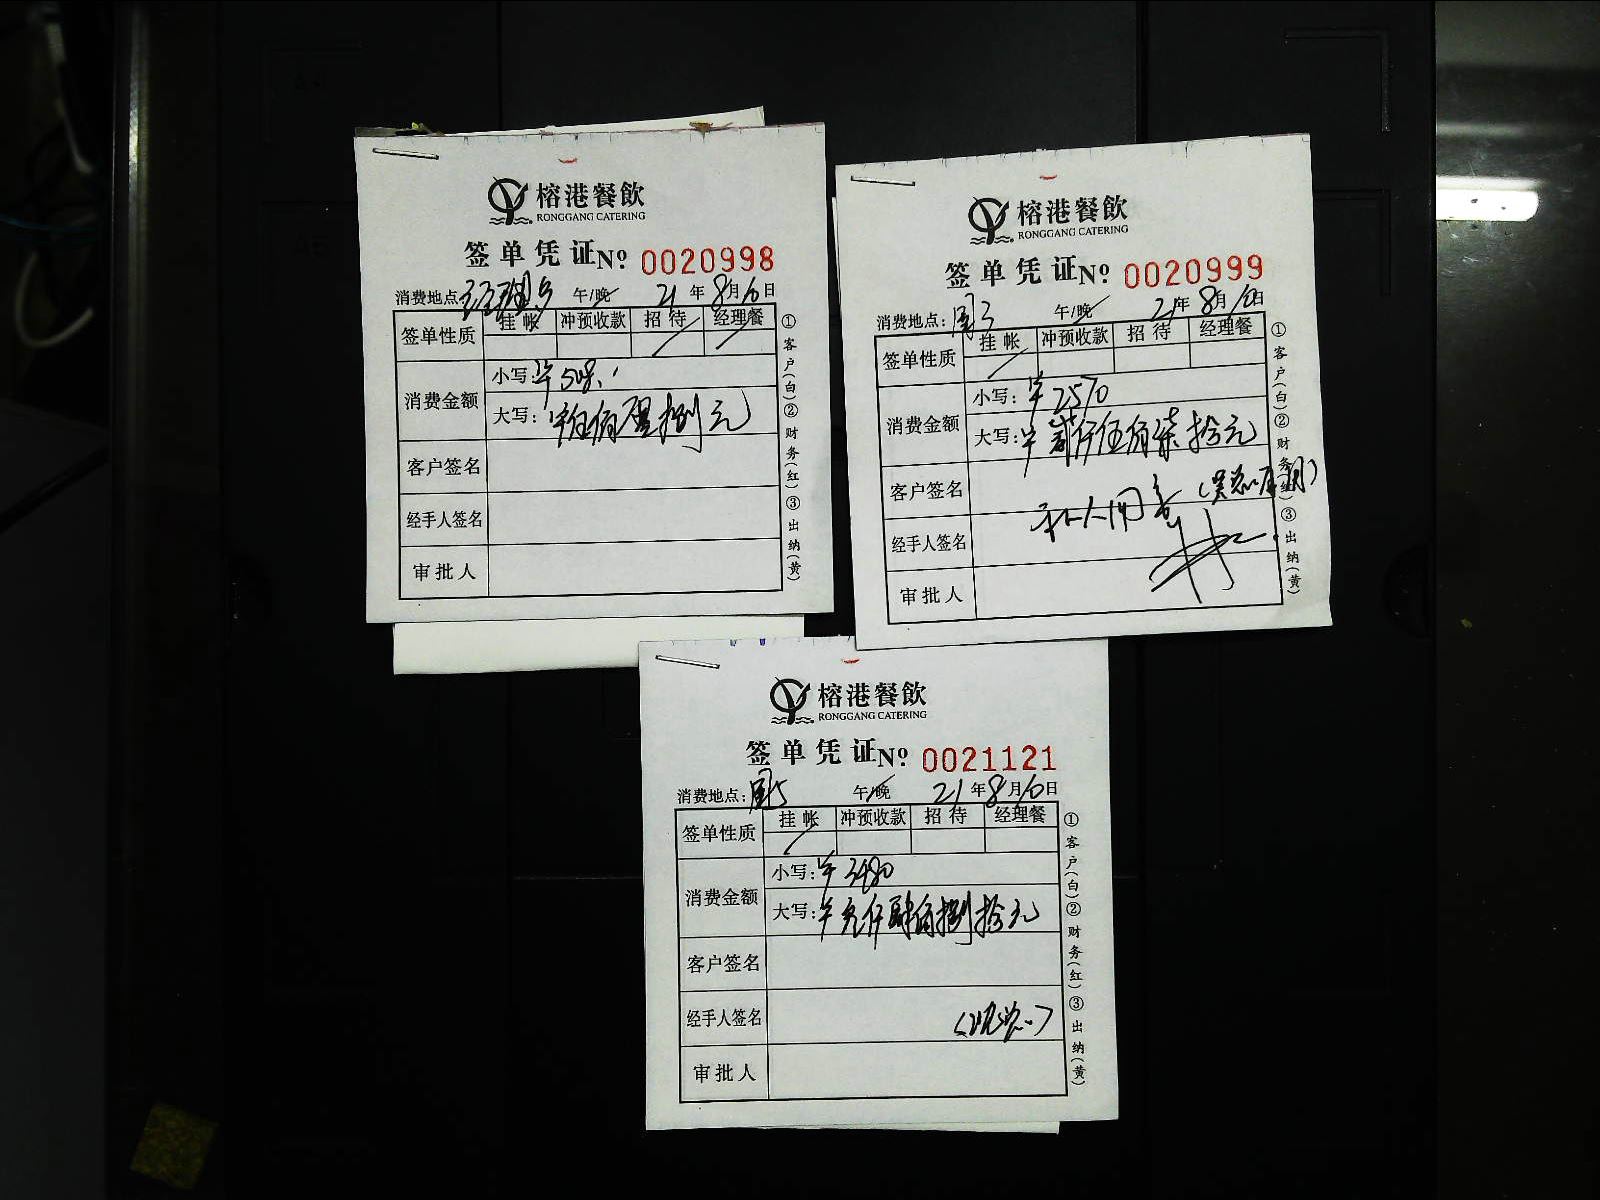 榕港餐飲
RONGGANG CATERING
签单凭证 Nº 0020998
消费地点 午/晚 21年8月10日
签单性质 挂帐 冲预收款 招待 经理餐
消费金额
小写:¥508.
大写:¥伍佰零捌元
客户签名
经手人签名
审批人
①客户(白)②财务(红)③出纳(黄)
榕港餐飲
RONGGANG CATERING
签单凭证 Nº 0020999
消费地点: 午/晚 21年8月10日
签单性质 挂帐 冲预收款 招待 经理餐
消费金额
小写:¥2570
大写:¥贰仟伍佰柒拾元
客户签名
私人用餐
经手人签名
审批人
①客户(白)②财务(红)③出纳(黄)
榕港餐飲
RONGGANG CATERING
签单凭证 Nº 0021121
消费地点: 午/晚 21年8月10日
签单性质 挂帐 冲预收款 招待 经理餐
消费金额
小写:¥3480
大写:¥叁仟肆佰捌拾元
客户签名
经手人签名
审批人
①客户(白)②财务(红)③出纳(黄)